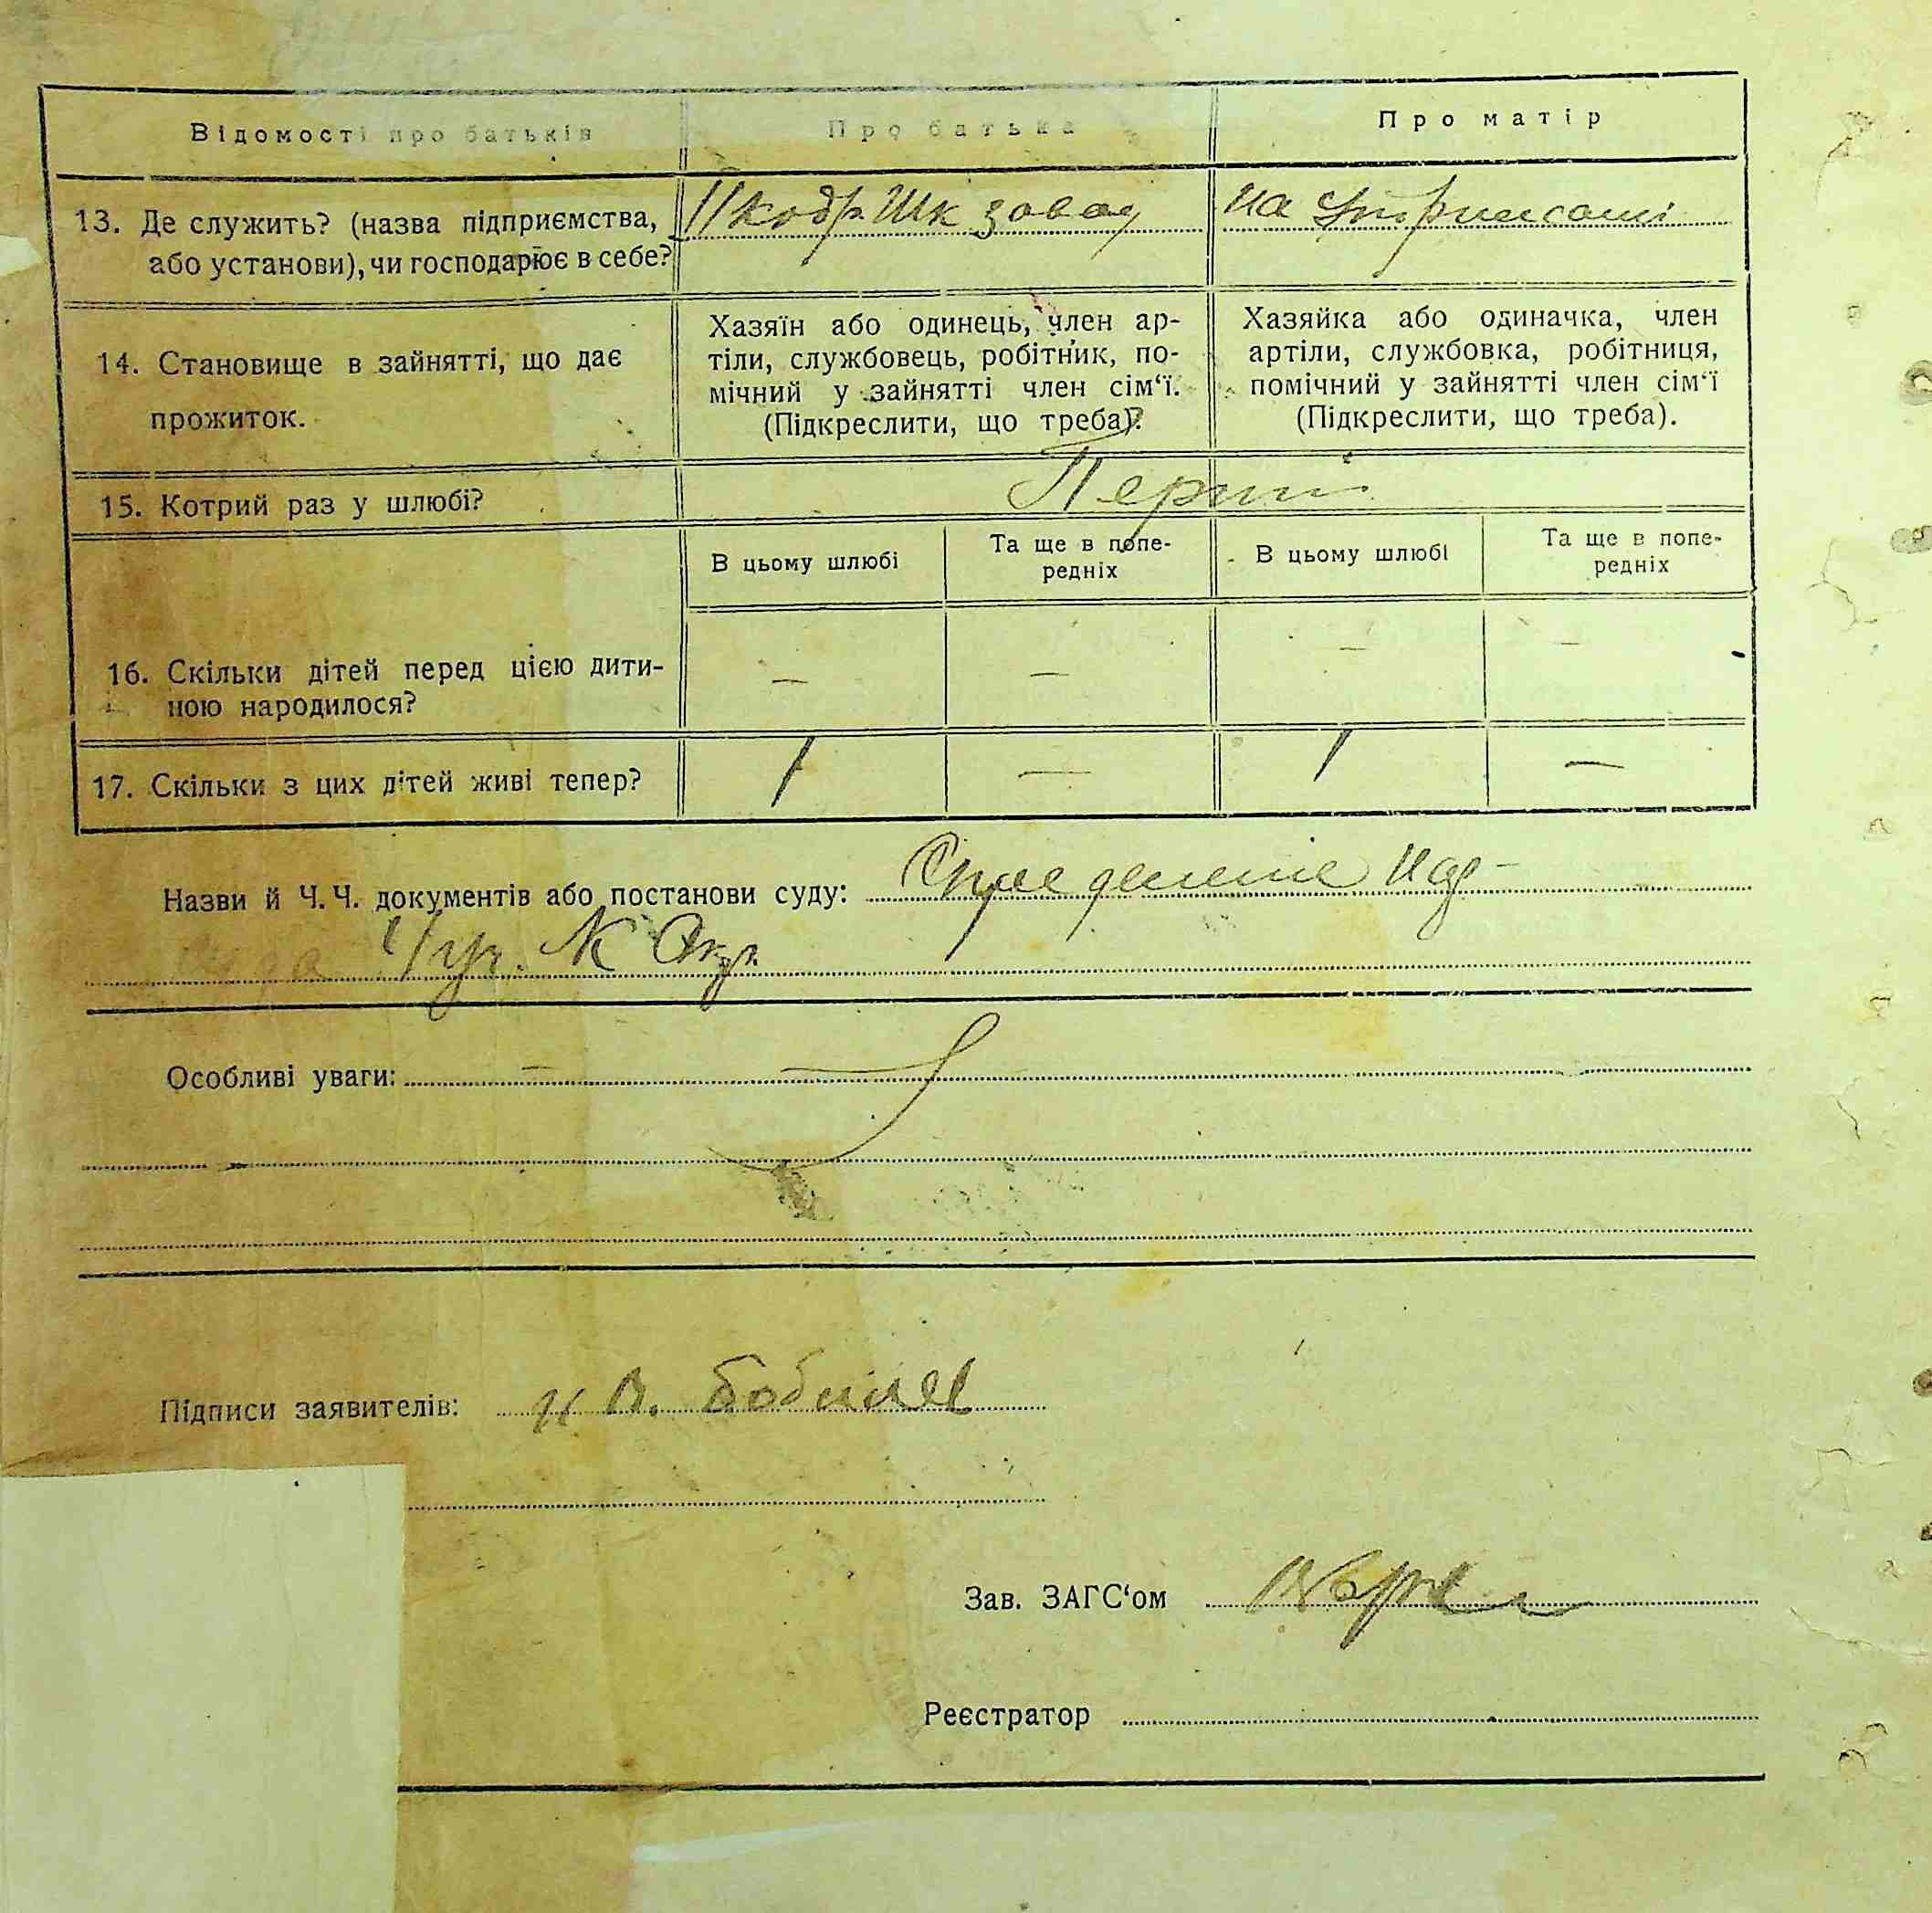 Відомості про батьків
Про батька
Про матір
13. Де служить? (назва підприємства,
або установи), чи господарює в себе?
завод
на
14. Становище в зайнятті, що дає
прожиток.
Хазяїн або одинець, член ар-
тіли, службовець, робітник, по-
мічний у зайнятті член сім‘ї.
(Підкреслити, що треба)?
Хазяйка або одиначка, член
артіли, службовка, робітниця,
помічний у зайнятті член сім‘ї
(Підкреслити, що треба).
15. Котрий раз у шлюбі?
В цьому шлюбі
Та ще в попе-
редніх
В цьому шлюбі
Та ще в попе-
редніх
16. Скільки дітей перед цією дити-
ною народилося?
— — — —
17. Скільки з цих дітей живі тепер?
1 — 1 —
Назви й Ч.Ч. документів або постанови суду:
Особливі уваги: —
Підписи заявителів:
Зав. ЗАГС‘ом
Реєстратор